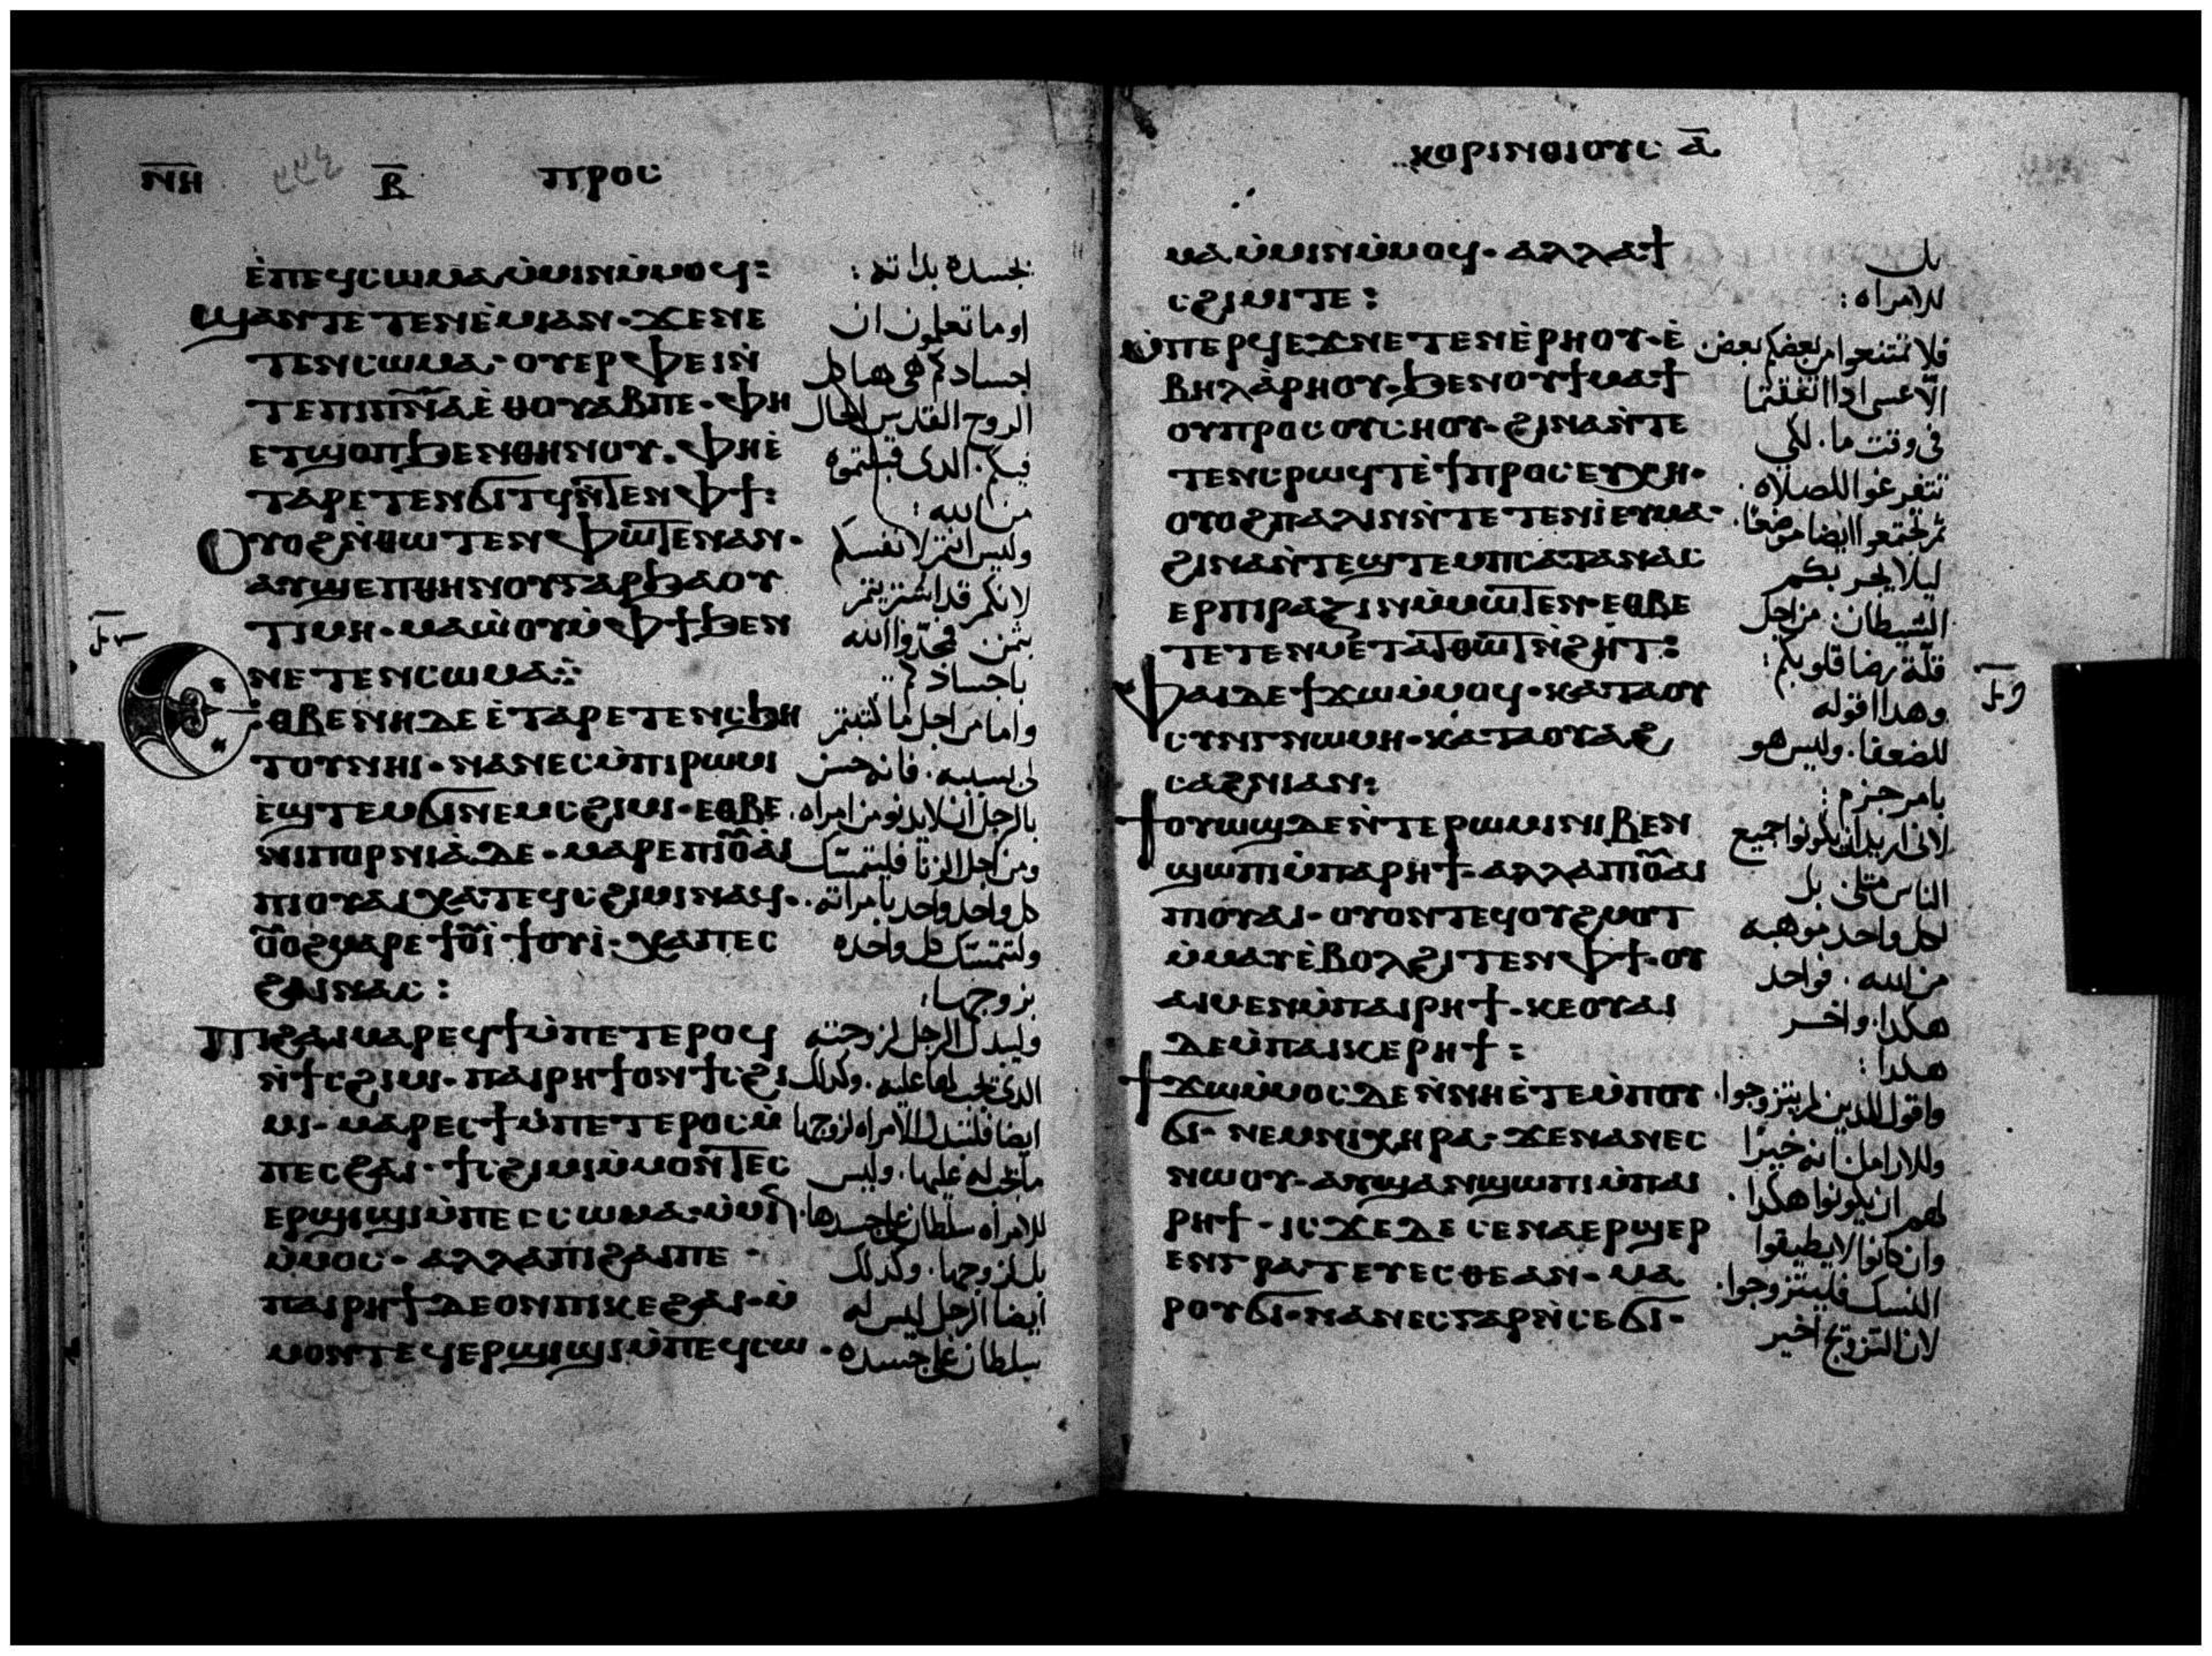 ⲛⲏ ⲃ ⲡⲣⲟⲥ
ⲉ̀ⲡⲉϥⲥⲱⲙⲁⲙ̀ⲙⲓⲛⲙ̀ⲙⲟϥ:
ϣⲁⲛⲧⲉⲧⲉⲛⲉ̀ⲙⲓⲁⲛ·ϫⲉⲛⲉ
ⲧⲉⲛⲥⲱⲙⲁ·ⲟⲩⲉⲣⲫⲉⲓⲛ̀
ⲧⲉⲡⲓⲡⲛ̅ⲁ̅ⲉ̀ⲑⲟⲩⲁⲃⲡⲉ·ⲫⲏ
ⲉⲧϣⲟⲡϧⲉⲛⲑⲏⲛⲟⲩ·ⲫⲏⲉ̀
ⲧⲁⲣⲉⲧⲉⲛϭⲓⲧϥⲛ̀ⲧⲉⲛⲫϯ:
ⲟⲩⲟϩⲛ̀ⲑⲱⲧⲉⲛⲫⲱⲧⲉⲛⲁⲛ·
ⲁⲩϣⲉⲡⲑⲏⲛⲟⲩⲅⲁⲣϧⲁⲟⲩ
ⲧⲓⲙⲏ·ⲙⲁⲱ̀ⲟⲩⲙ̀ⲫϯϧⲉⲛ
ⲛⲉⲧⲉⲛⲥⲱⲙⲁ:
ⲉⲑⲃⲉⲛⲏⲇⲉⲉ̀ⲧⲁⲣⲉⲧⲉⲛⲥϧⲏ
ⲧⲟⲩⲛⲏⲓ·ⲛⲁⲛⲉⲥⲙ̀ⲡⲓⲣⲱⲙⲓ
ⲉ̀ϣⲧⲉⲙϭⲓⲛⲉⲙⲥϩⲓⲙⲓ·ⲉⲑⲃⲉ
ⲛⲓⲡⲟⲣⲛⲓⲁ̀ⲇⲉ·ⲙⲁⲣⲉⲡⲓⲟ̅ⲩ̅ⲁⲓ
ⲡⲓⲟⲩⲁⲓⲭⲁⲧⲉϥⲥϩⲓⲙⲓⲛⲁϥ·
ⲟ̅ⲩ̅ⲟϩⲙⲁⲣⲉϯⲟ̅ⲩ̅ⲓ̀ϯⲟⲩⲓ̀·ⲭⲁⲡⲉⲥ
ϩⲁⲓⲛⲁⲥ:
ⲡⲓϩⲁⲓⲙⲁⲣⲉϥϯⲙ̀ⲡⲉⲧⲉⲣⲟϥ
ⲛ̀ϯⲥϩⲓⲙⲓ·ⲡⲁⲓⲣⲏϯⲟⲛϯⲥϩⲓ
ⲙⲓ·ⲙⲁⲣⲉⲥϯⲙ̀ⲡⲉⲧⲉⲣⲟⲥⲙ̀
ⲡⲉⲥϩⲁⲓ·ϯⲥϩⲓⲙⲓⲙ̀ⲙⲟⲛⲧⲉⲥ
ⲉⲣϣⲓϣⲓⲙ̀ⲡⲉⲥⲥⲱⲙⲁ·ⲙ̀ⲙⲓⲛ
ⲙ̀ⲙⲟⲥ·ⲁⲗⲗⲁⲡⲓϩⲁⲓⲡⲉ·
ⲡⲁⲓⲣⲏϯⲇⲉⲟⲛⲡⲓⲕⲉϩⲁⲓ·ⲙ̀
ⲙⲟⲛⲧⲉϥⲉⲣϣⲓϣⲓⲙ̀ⲡⲉϥⲥⲱ
بجسده بذاته:
اوما تعلمون ان
اجسادكم هى هياكل
الروح القدس الحال
فيكم. الدى قبلتموه
من الله:
وليس انتم لانفسكم
لانكم قد اشتريتم
بثمن فمجّدوا الله
باجسادكم
واما من اجل ما كتبتم
لى بسببه. فانه حسن
بالرجل ان لا يدنو من امراه.
ومن اجل الزنا فليتمسك
كل واحد واحد بامراته.
ولتتمسك كل واحده
بزوجها:
وليبدل الرجل لزوجته
الدى يجب لها عليه. وكدلك
ايضا فلتبدل الامراه لزوجها
ما يجب له عليها. وليس
للامراه سلطان على جسدها.
بل لزوجها. وكدلك
ايضا الرجل ليس له
سلطان على جسده
ⲕⲟⲣⲓⲛⲑⲓⲟⲩⲥ ⲁ̅
ⲙⲁⲙ̀ⲙⲓⲛⲙ̀ⲙⲟϥ·ⲁⲗⲗⲁϯ
ⲥϩⲓⲙⲓⲧⲉ:
ⲙ̀ⲡⲉⲣϥⲉϫⲛⲉⲧⲉⲛⲉ̀ⲣⲏⲟⲩ·ⲉ̀
ⲃⲏⲗⲁ̀ⲣⲏⲟⲩ·ϧⲉⲛⲟⲩϯⲙⲁϯ
ⲟⲩⲡⲣⲟⲥⲟⲩⲥⲏⲟⲩ·ϩⲓⲛⲁⲛ̀ⲧⲉ
ⲧⲉⲛⲥⲣⲱϥⲧⲉ̀ϯⲡⲣⲟⲥⲉⲩⲭⲏ·
ⲟⲩⲟϩⲡⲁⲗⲓⲛⲛ̀ⲧⲉⲧⲉⲛⲓ̀ⲉⲩⲙⲁ·
ϩⲓⲛⲁⲛ̀ⲧⲉϣⲧⲉⲙⲡⲥⲁⲧⲁⲛⲁⲥ
ⲉⲣⲡⲓⲣⲁⲍⲓⲛⲙ̀ⲙⲱⲧⲉⲛ·ⲉⲑⲃⲉ
ⲧⲉⲧⲉⲛⲙⲉⲧⲁⲧⲑⲱⲧⲛ̀ϩⲏⲧ:
ⲫⲁⲓⲇⲉϯϫⲱⲙ̀ⲙⲟϥ·ⲕⲁⲧⲁⲟⲩ
ⲥⲩⲛⲅⲛⲱⲙⲏ·ⲕⲁⲧⲁⲟⲩⲁϩ
ⲥⲁϩⲛⲓⲁⲛ:
ϯⲟⲩⲱϣⲇⲉⲛ̀ⲧⲉⲣⲱⲙⲓⲛⲓⲃⲉⲛ
ϣⲱⲡⲓⲙ̀ⲡⲁⲣⲏϯ·ⲁⲗⲗⲁⲡⲓⲟ̅ⲩ̅ⲁⲓ
ⲡⲓⲟⲩⲁⲓ·ⲟⲩⲟⲛⲧⲉϥⲟⲩϩⲙⲟⲧ
ⲙ̀ⲙⲁⲩⲉ̀ⲃⲟⲗϩⲓⲧⲉⲛⲫϯ·ⲟⲩ
ⲁⲓⲙⲉⲛⲙ̀ⲡⲁⲓⲣⲏϯ·ⲕⲉⲟⲩⲁⲓ
ⲇⲉⲙ̀ⲡⲁⲓⲕⲉⲣⲏϯ:
ϯϫⲱⲙ̀ⲙⲟⲥⲇⲉⲛ̀ⲛⲏⲉ̀ⲧⲉⲙ̀ⲡⲟⲩ
ϭⲓ·ⲛⲉⲙⲛⲓⲭⲏⲣⲁ·ϫⲉⲛⲁⲛⲉⲥ
ⲛⲱⲟⲩ·ⲁⲩϣⲁⲛϣⲱⲡⲓⲙ̀ⲡⲁⲓ
ⲣⲏϯ·ⲓⲥϫⲉⲇⲉⲥⲉⲛⲁⲉⲣϣⲉⲣ
ⲉⲛⲅⲣⲁⲧⲉⲩⲉⲥⲑⲉⲁⲛ·ⲙⲁ
ⲣⲟⲩϭⲓ·ⲛⲁⲛⲉⲥⲅⲁⲣⲛ̀ⲥⲉϭⲓ·
بل
للامراه:
فلا تمتنعوا من بعضكم بعض.
الّا عسى ادا اتفقتما
فى وقت ما. لكى
تتفرغوا للصلاه.
ثم تجتمعوا ايضا موضعًا.
ليلا يجربكم
الشيطان من اجل
قلّة رضا قلوبكم:
وهدا اقوله
للضعفا. وليس هو
بامر جزم:
لانى اريد ان يكونوا جميع
الناس مثلى بل
لكل واحد موهبه
من الله. فواحد
هكدا. واخر
هكدا:
واقول للدين لم يتزوجوا.
وللارامل انه خيرًا
لهم ان يكونوا هكدا.
وان كانوا لا يطيقوا
النسك فليتزوجوا.
لان التزوج اخير